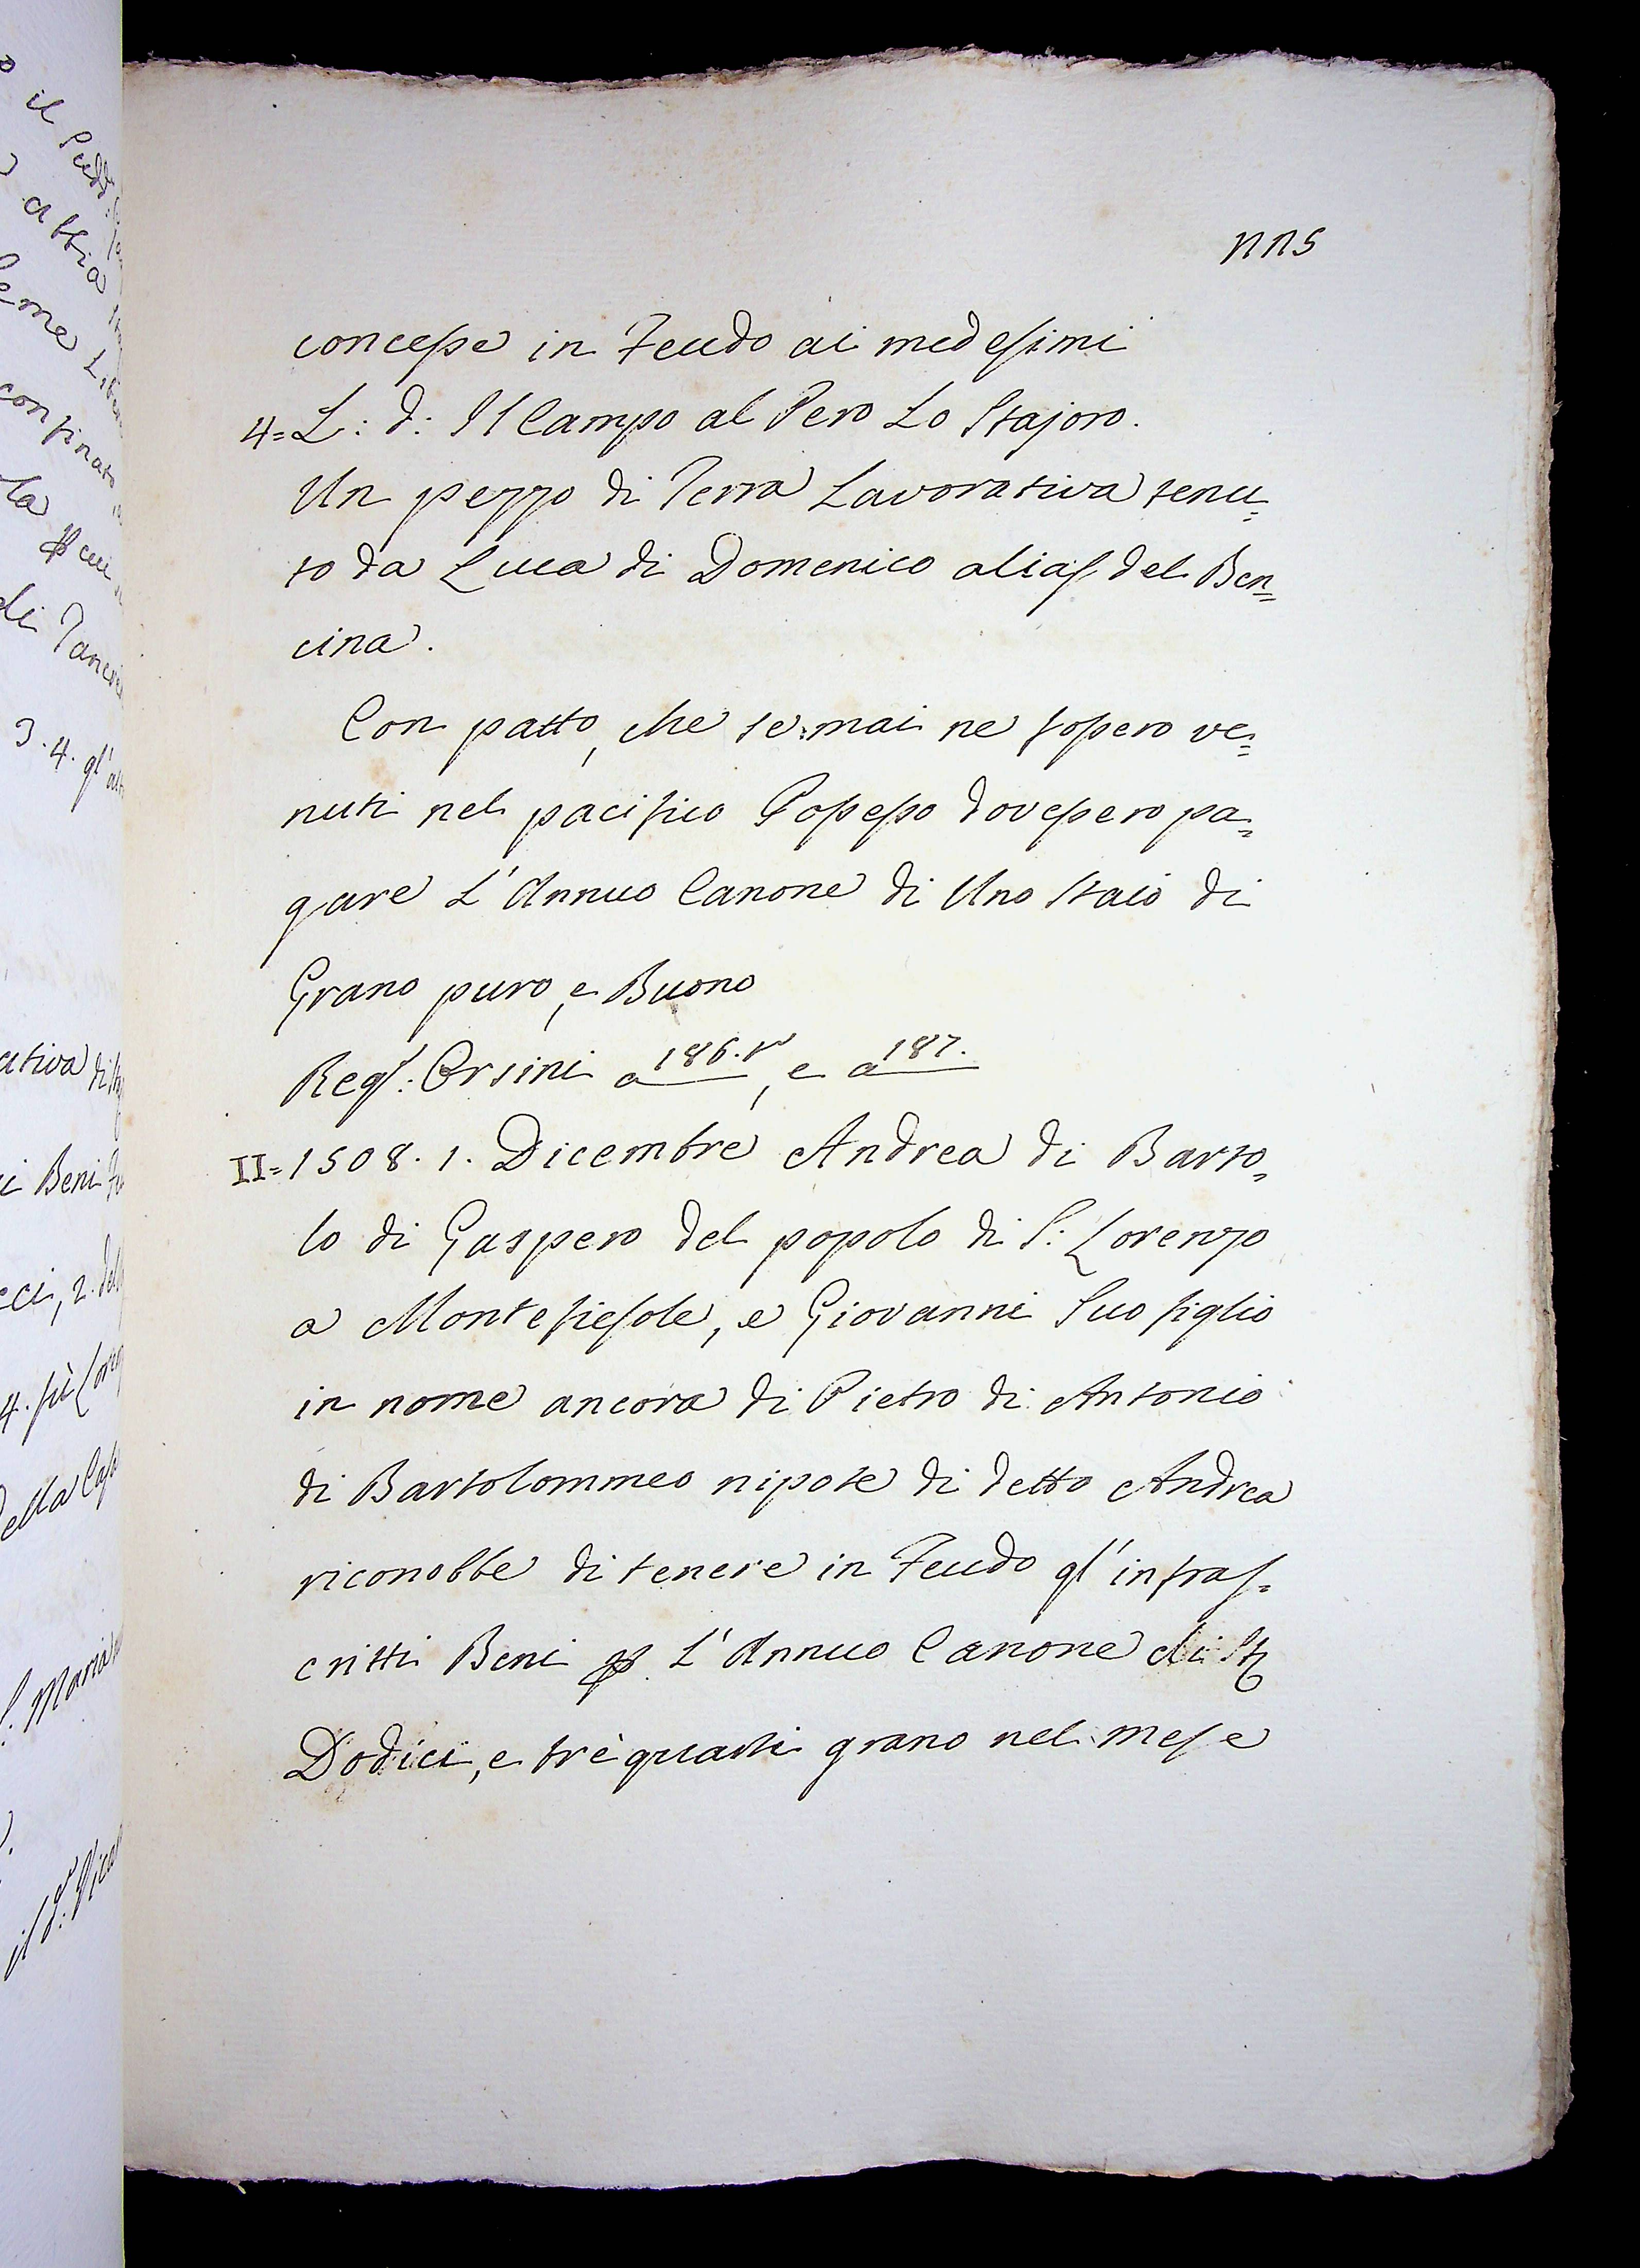 concesse in Feudo ai medesimi
4= L: d: Il Campo al Pero Lo Stajoro.
Un pezzo di Terra Lavorativa tenu=
to da Luca di Domenico alias del Ben=
cina.
Con patto, che se mai ne fossero ve=
nuti nel pacifico Possesso dovessero pa=
gare L'Annuo Canone di Uno Staio di
Grano puro, e Buono
Regs: Orsini a 186. v, e a 187.
II= 1508. 1. Dicembre Andrea di Barto=
lo di Gaspero del popolo di S: Lorenzo
a Montefiesole, e Giovanni Suo figlio
in nome ancora di Pietro di Antonio
di Bartolommeo nipote di detto Andrea
riconobbe di tenere in Feudo gl'infras=
critti Beni p L'Annuo Canone di St
Dodici, e trè quarti grano nel mese